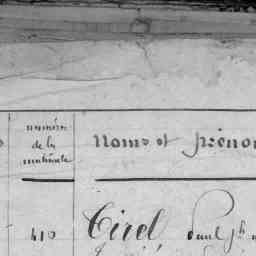 numéro
de la
matricule
Noms et prénom
410
Tirel Paul